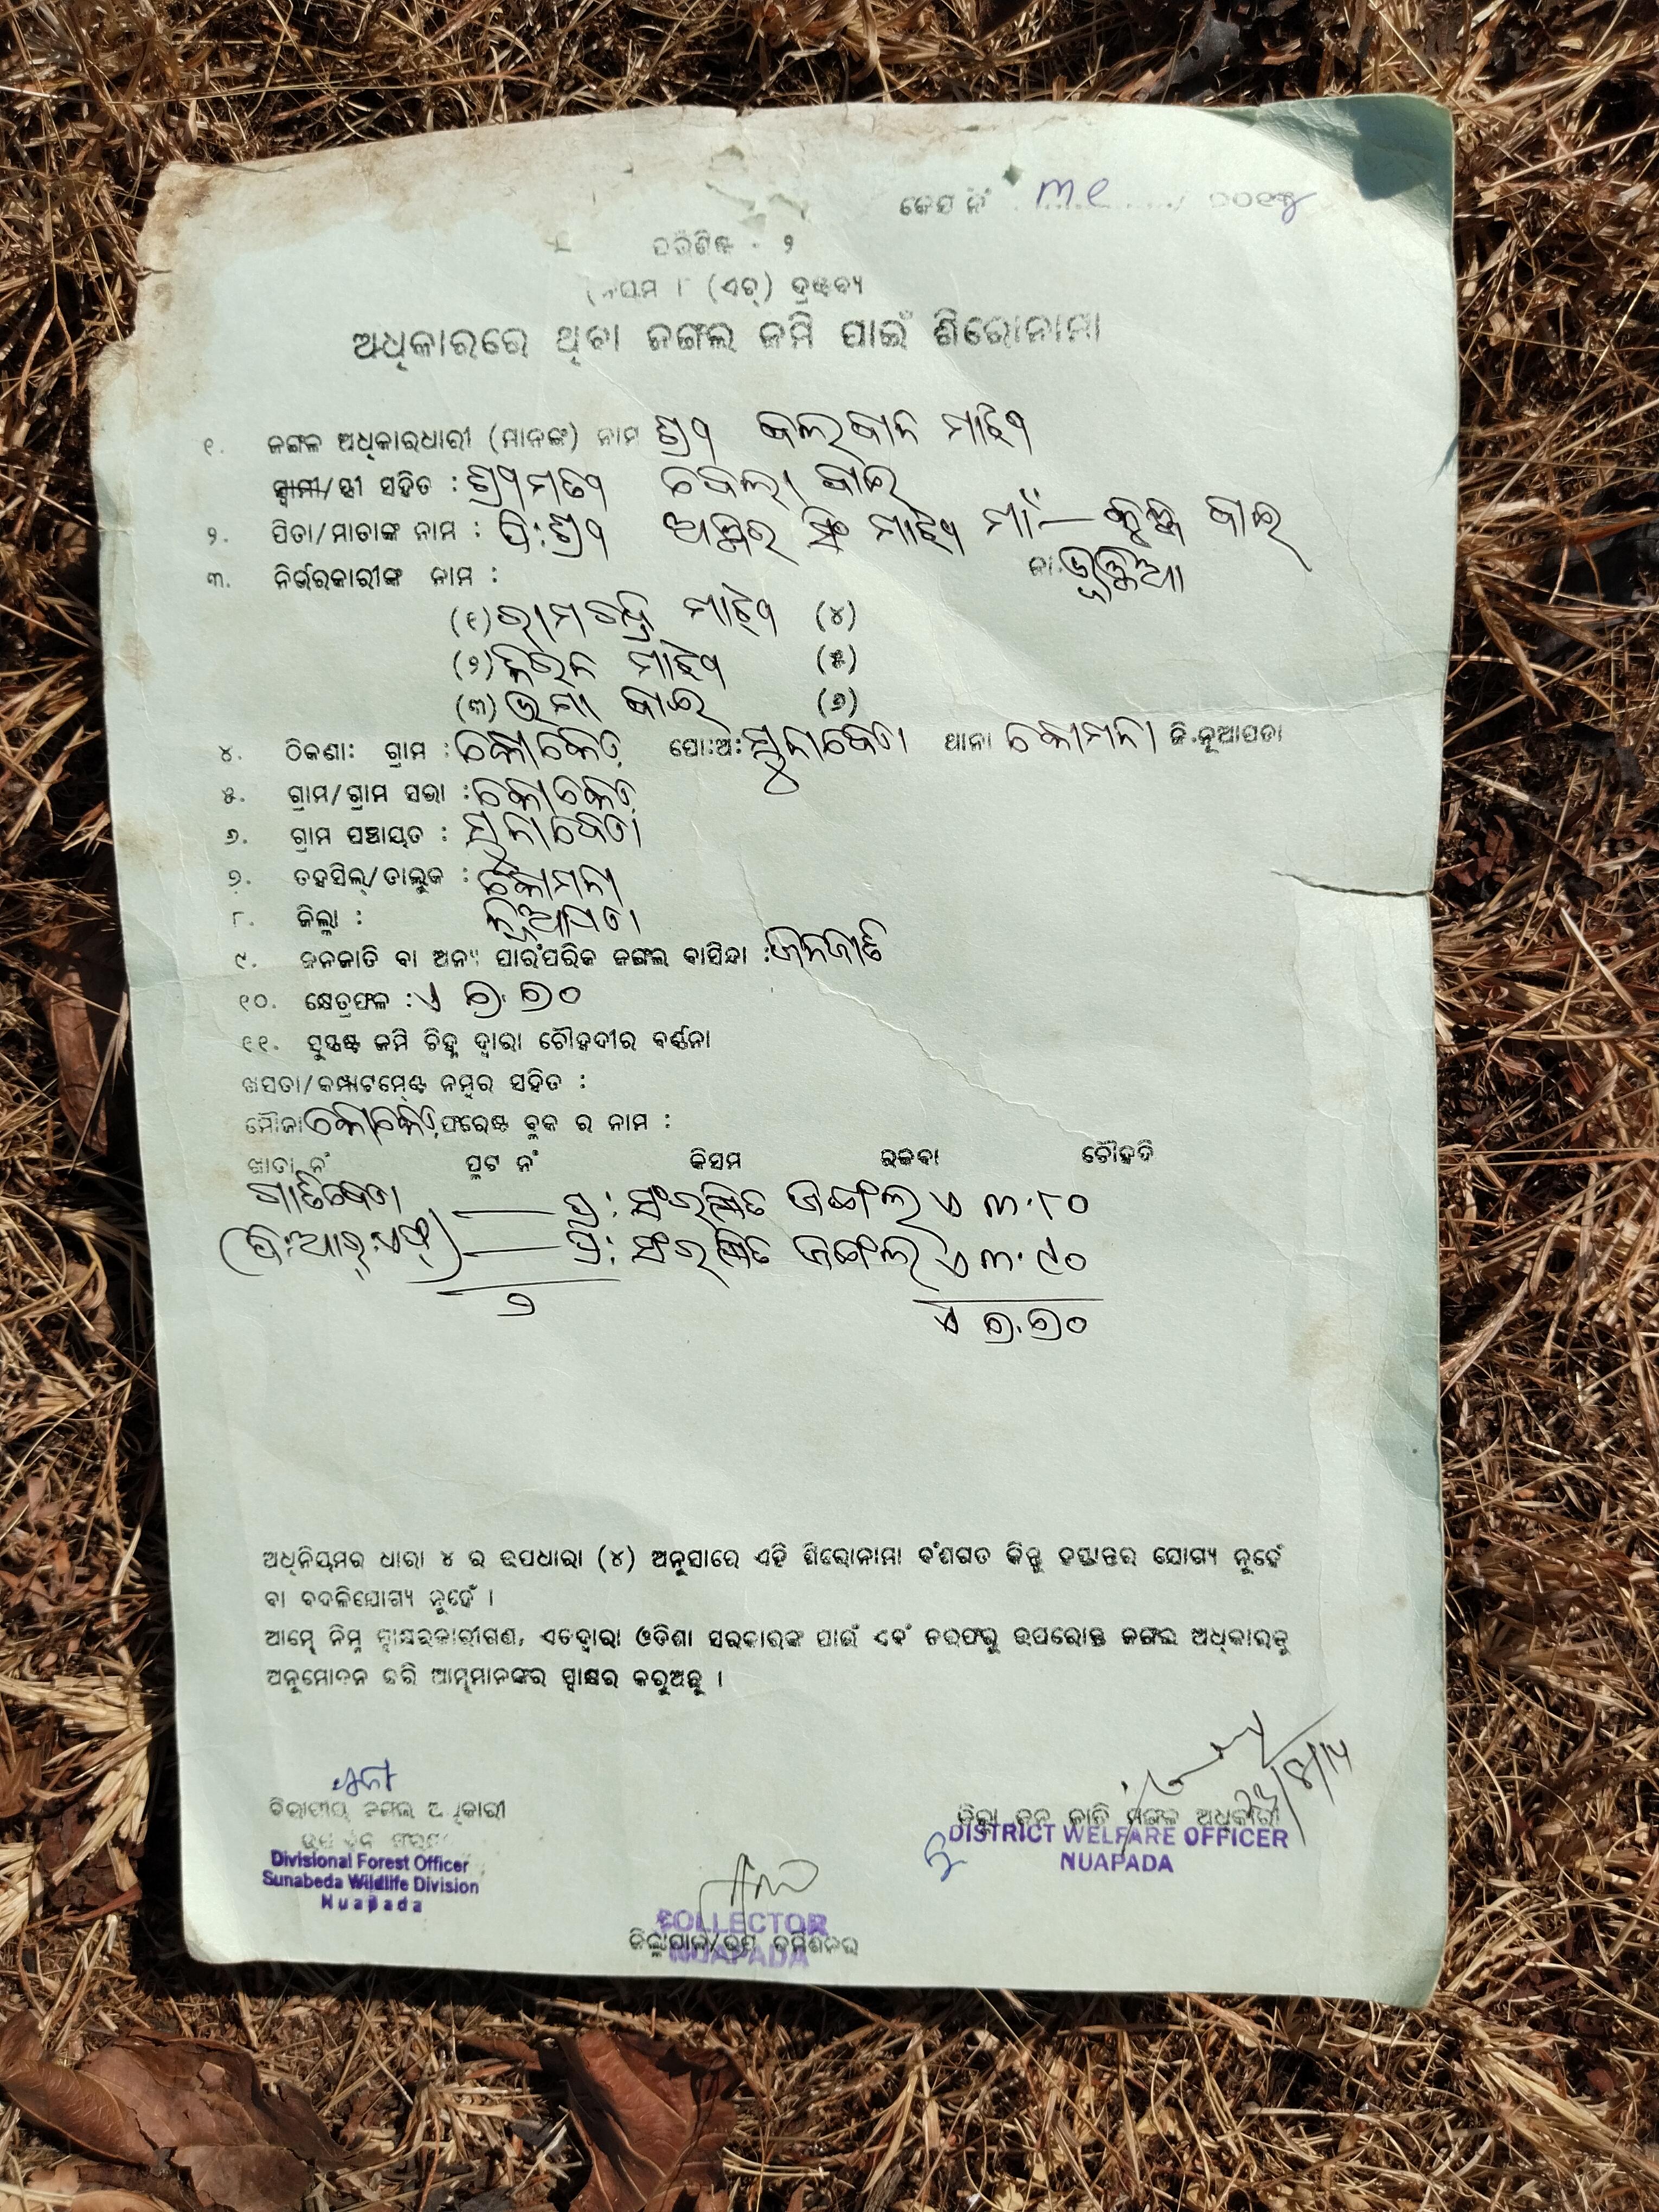 କେସ ନଂ ୩୧ / ୨୦୧୪
ପରିଶିଷ୍ଟ - ୨
(ନିୟମ ୮ (ଏଚ୍) ଦ୍ରଷ୍ଟବ୍ୟ
ଅଧିକାରରେ ଥିବା ଜଙ୍ଗଲ ଜମି ପାଇଁ ଶିରୋନାମା
୧. ଜଙ୍ଗଲ ଅଧିକାରଧାରୀ (ମାନଙ୍କ) ନାମ ଶ୍ରୀ କଲବୀନ ମାଝି
ସ୍ବାମୀ/ସ୍ତ୍ରୀ ସହିତ : ଶ୍ରୀମତୀ ବେଲା ବାଇ
୨. ପିତା/ମାତାଙ୍କ ନାମ : ପି:ଶ୍ରୀ ସିଂ ମାଝି ମାଁ— ବାଇ
୩. ନିର୍ଭରକାରୀଙ୍କ ନାମ : ଜା.ଭୁଞ୍ଜିଆ
(୧) ରାମଚନ୍ଦ୍ର ମାଝି (୪)
(୨) କିରନ ମାଝି (୫)
(୩) ଉମା ବାଇ (୬)
୪. ଠିକଣା: ଗ୍ରାମ : କୋକେଡ଼ା ପୋ:ଅ: ସୁନାବେଡା ଥାନା କୋମନା ଜି.ନୂଆପଡା
୫. ଗ୍ରାମ/ଗ୍ରାମ ସଭା : କୋକେଡ଼ା
୬. ଗ୍ରାମ ପଞ୍ଚାୟତ : ସୁନାବେଡା
୭. ତହସିଲ୍/ତାଲୁକ : କୋମନା
୮. ଜିଲ୍ଲା : ନୂଆପଡା
୯. ଜନଜାତି ବା ଅନ୍ୟ ପାରଂପରିକ ଜଙ୍ଗଲ ବାସିନ୍ଦା : ଜନଜାତି
୧୦. କ୍ଷେତ୍ରଫଳ : ଏ ୭.୭୦
୧୧. ସୁସ୍ପଷ୍ଟ ଜମି ଚିହ୍ନ ଦ୍ୱାରା ଚୌହଦୀର ବର୍ଣ୍ଣନା
ଖସଡା/କମ୍ପାଟମେଣ୍ଟ ନମ୍ବର ସହିତ :
ମୌଜା କୋକେଡ଼ା ଫରେଷ୍ଟ ବ୍ଲକ ର ନାମ :
ଖାତା ନଂ ପ୍ଲଟ ନଂ କିସମ ରକବା ଚୌହଦି
ପାତିବେଡା — ପ୍ର: ସଂରକ୍ଷିତ ଜଙ୍ଗଲ ଏ ୩.୮୦
(ପି:ଆର୍:ଏଫ୍) — ପ୍ର: ସଂରକ୍ଷିତ ଜଙ୍ଗଲ ଏ ୩.୯୦
୨ ଏ ୭.୭୦
ଅଧିନିୟମର ଧାରା ୪ ର ଉପଧାରା (୪) ଅନୁସାରେ ଏହି ଶିରୋନାମା ବଂଶଗତ କିନ୍ତୁ ହସ୍ତାନ୍ତର ଯୋଗ୍ୟ ନୁହେଁ
ବା ବଦଳିଯୋଗ୍ୟ ନୁହେଁ ।
ଆମ୍ଭେ ନିମ୍ନ ସ୍ୱାକ୍ଷରକାରୀଗଣ, ଏତଦ୍ୱାରା ଓଡିଶା ସରକାରଙ୍କ ପାଇଁ ଏବଂ ତରଫରୁ ଉପରୋକ୍ତ ଜଙ୍ଗଲ ଅଧିକାରକୁ
ଅନୁମୋଦନ କରି ଆମ୍ଭମାନଙ୍କର ସ୍ୱାକ୍ଷର କରୁଅଛୁ ।
ଡିଭିଜନାଲ ଜଙ୍ଗଲ ଅଧିକାରୀ
Divisional Forest Officer
Sunabeda Wildlife Division
Nuapada
ଜିଲ୍ଲା ଜନ ଜାତି ମଙ୍ଗଳ ଅଧିକାରୀ
DISTRICT WELFARE OFFICER
NUAPADA
COLLECTOR
ଜିଲ୍ଲାପାଳ/ଉପ କମିଶନର
NUAPADA